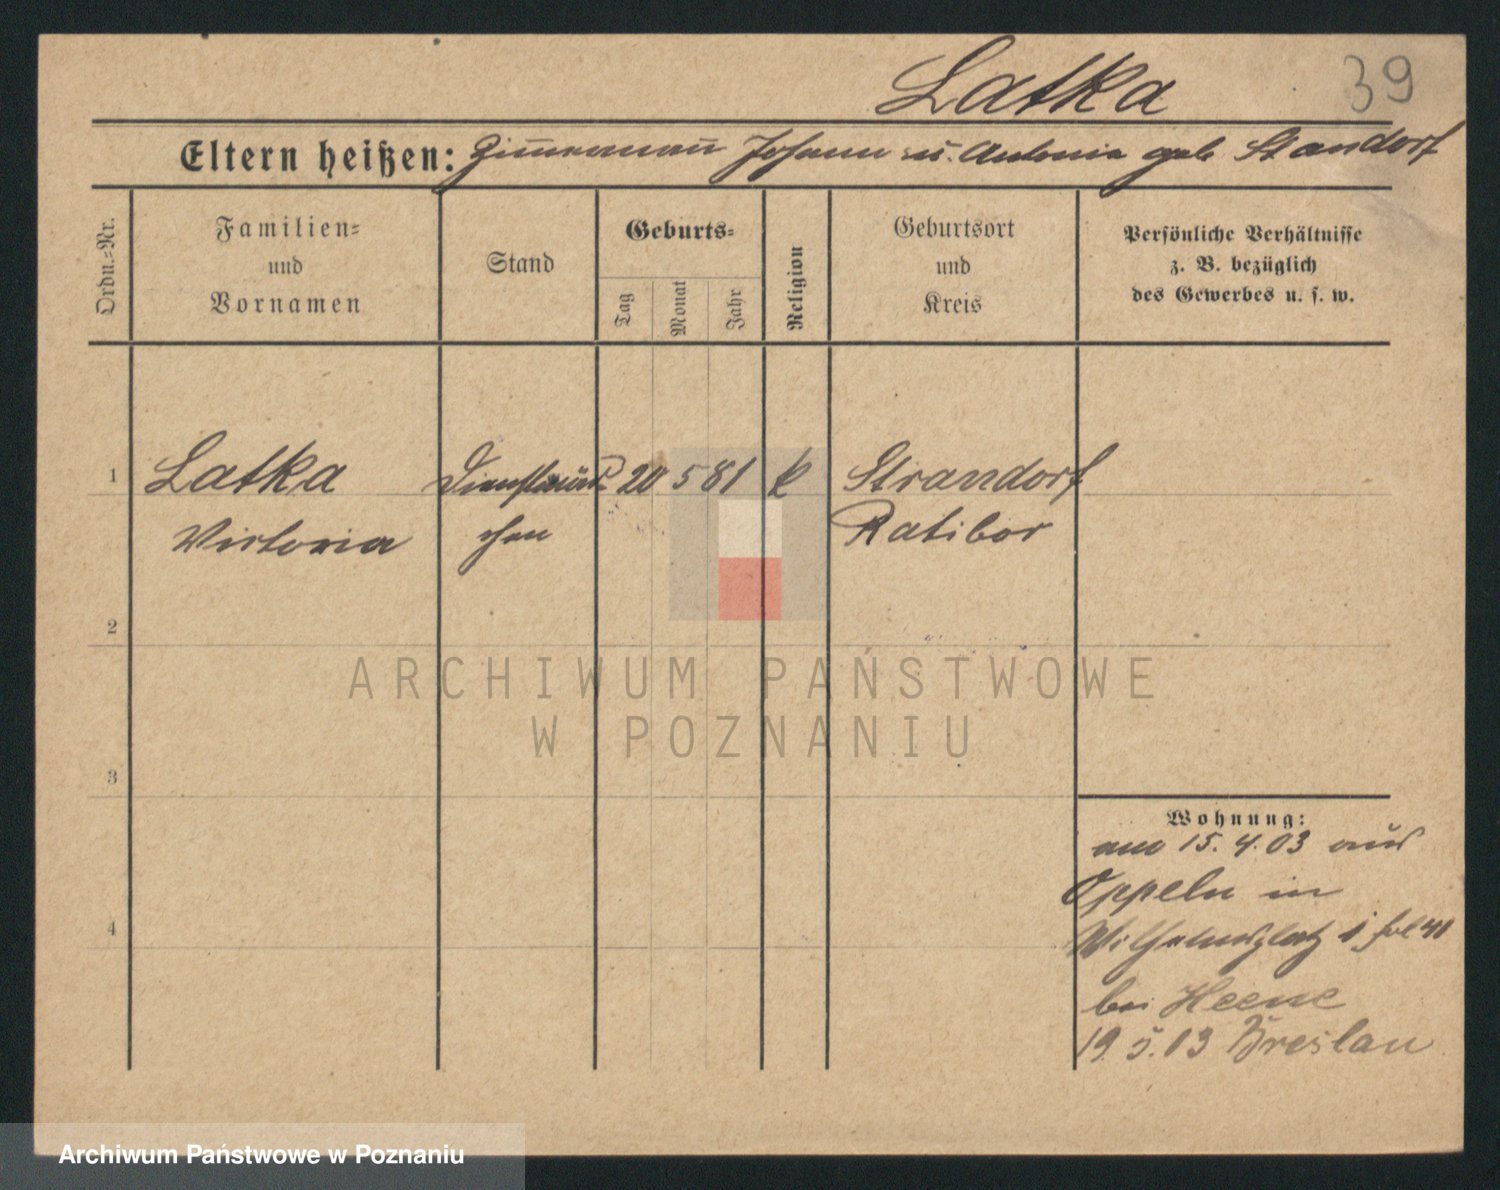 Latka
39
Eltern heißen: Zimmermann Johann u. Antonia geb Standorf
Ordn.-Nr.
Familien-
und
Vornamen
Stand
Geburts-
Tag
Monat
Jahr
Religion
Geburtsort
und
Kreis
Persönliche Verhältnisse
z. B. bezüglich
des Gewerbes u. s. w.
1 Latka Dienstmäd- 20 5 81 k Strandorf
Victoria chen Ratibor
2
3
4
Wohnung:
am 15. 4. 03 aus
Oppeln in
Wilhelmsplatz 1 fol 41
bei Heene
19. 5. 03 Breslau
ARCHIWUM PAŃSTWOWE
W POZNANIU
Archiwum Państwowe w Poznaniu